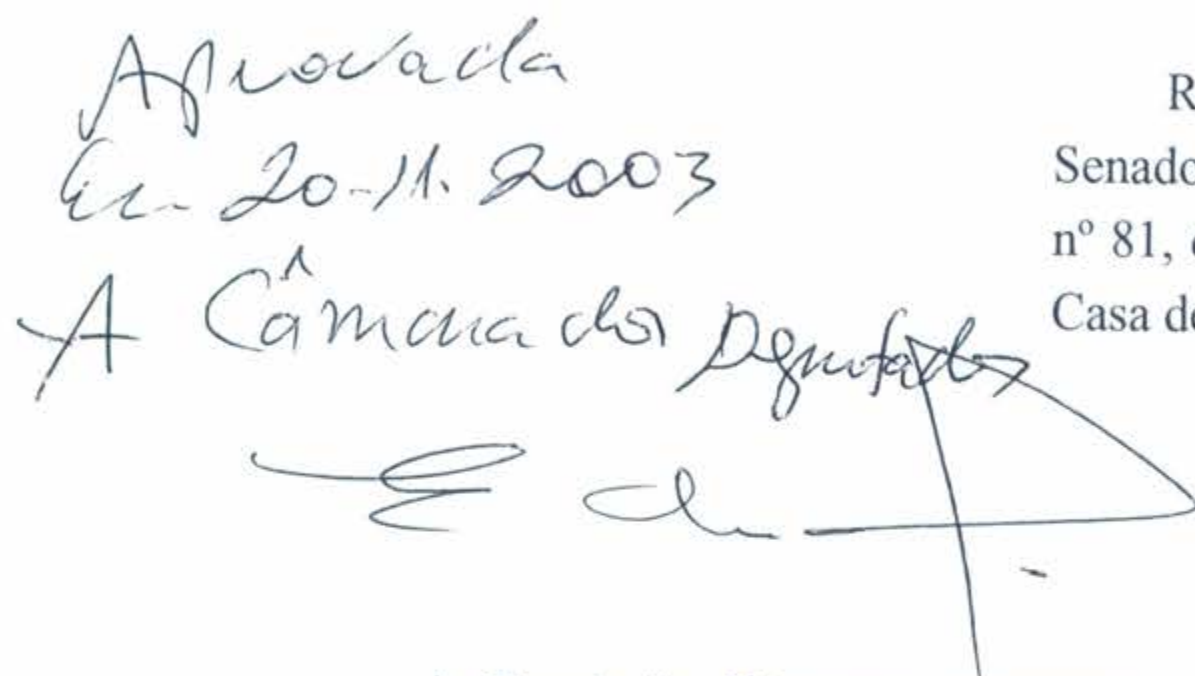 Aprovada
Em 20-11-2003
A Câmara dos Deputados
R
Senado
nº 81,
Casa de